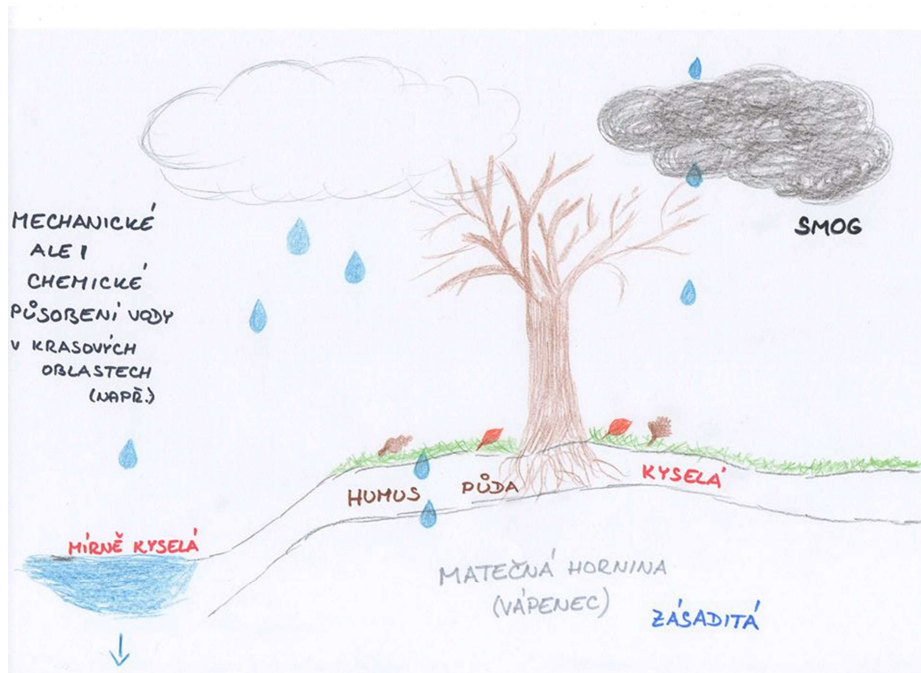 MECHANICKÉ
ALE I
CHEMICKÉ
PŮSOBENÍ VODY
V KRASOVÝCH
OBLASTECH
(NAPŘ.)
SMOG
HUMUS PŮDA KYSELÁ
MÍRNĚ KYSELÁ
MATEČNÁ HORNINA
(VÁPENEC)
ZÁSADITÁ